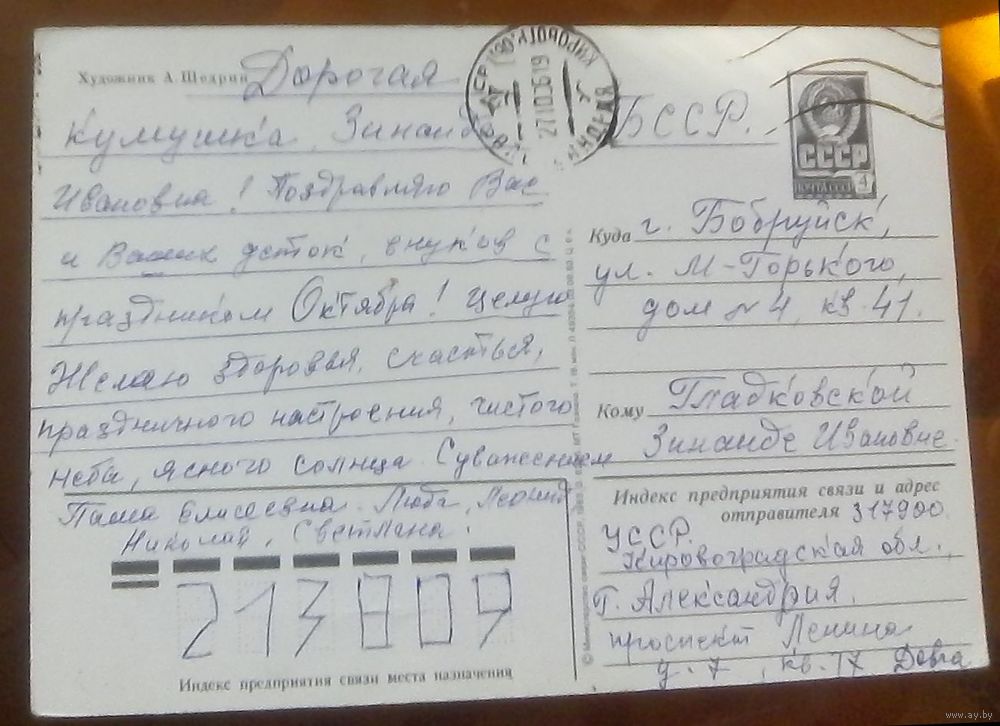 Художник А. Щедрин
Дорогая
кумушка, Зинаида
Ивановна! Поздравляю Вас
и Ваших деток, внуков с
праздником Октября! Целую
Желаю здоровья, счастья,
праздничного настроения, чистого
неба, ясного солнца. С уважением
Паша Елисеевна. Люба, Леонид
Николай, Светлана.
213809
Индекс предприятия связи места назначения
БССР.
СССР
ПОЧТА СССР 4
Куда г. Бобруйск,
ул. М-Горького,
дом № 4, кв. 41.
Кому Гладковской
Зинаиде Ивановне.
Индекс предприятия связи и адрес
отправителя 317900
УССР.
Кировоградская обл.,
г. Александрия.
проспект Ленина
д. 7, кв. 17
© Министерство связи СССР, 1983
www.ay.by